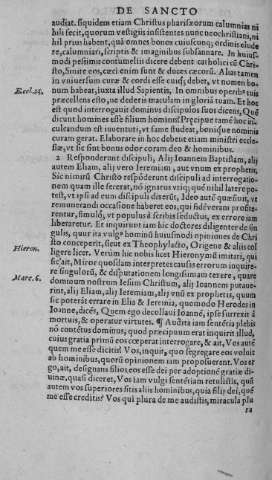 DE SANCTO
audiat. siquidem etiam Christus pharisæorum calumnias ni
hil fecit, quorum vestigiis insistentes nunc neochristiani, ni
hil prius habent, quà omnes bonos cuiuscunq; ordinis elude
re, calumniari, scriptis & imaginibus subsannare. In huius-
modi pessimis contumeliis dicere debent catholici cũ Chri-
sto, Sinite eos, cæci enim sunt & duces cæcorũ. Alias tamen
in vniuersum curæ & cordi esse cuiq; debet, vt nomen bo-
num habeat, iuxta illud Sapientis, In omnibus operib⁹ tuis
Eccl. 33.
præcellens esto, ne dederis maculam in gloria tuam. Et hoc
est quod interrogauit dominus discipulos suos dicens, Quē
dicunt homines esse filium hominis? Præcipue tamē hoc in-
culcandum est iuuentuti, vt famę studeat, benique nominis
curam gerat. Elaborare in hoc debent etiam ministri eccle-
siæ, vt sic sint bonus odor coram deo & hominibus.
2 Responderunt discipuli, Alij Ioannem Baptistam, alij
autem Eliam, alij vero Ieremiam, aut vnum ex prophetis.
Sic nimirũ Christo respōdent discipuli ad interrogatio-
nem quam ille fecerat, nō ignarus vtiq; quē nihil latere po-
test, vt ipsi ad eum discipuli diuertãt, Ideo autē quæsiuit, vt
remunerandi occasione haberet eos, qui fidē veram profite-
rentur, simulq̃, vt populus à scribis seductus, ex errore iam
liberaretur. Et inquirunt iam hic doctores diligenter de sin
gulis, quæ ita vulg⁹ hominũ huiusmodi opiniones de Chri
sto conceperit, sicut ex Theophylacto, Origene & aliis col
ligere licet. Verum hic nobis licet Hieronymũ imitari, qui
Hieron.
sic ait, Miror quosdam interpretes causas errorum inquire
re singulorũ, & disputationem longissimam texere, quare
dominum nostrum Iesum Christum, alij Ioannem putaue-
Marc. 6.
rint, alij Eliam, alij Ieremiam, alij vnũ ex prophetis, quum
sic potuerint errare in Elia & Ieremia, quomodo Herodes in
Ioanne, dicēs, Quem ego decollaui Ioannē, ipse surrexit à
mortuis, & operatur virtutes. ¶ Audita iam sentētia plebis
nō contētus dominus, quod præcipuum erat inquirit illud,
cuius gratia primũ eos cœperat interrogare, & ait, Vos autē
quem me esse dicitis? Vos, inquit, quos segregare eos voluit
ab hominibus, quorũ opinionem iam proposuerant. Vos er
go, ait, designans filios eos esse dei per adoptionē gratiæ di-
uinæ, quasi diceret, Vos iam vulgi sentētiam retulistis, quã
autem vos superiores sitis aliis hominibus, quia filij dei, quē
me esse creditis? Vos qui plura de me audistis, miracula plu
ra